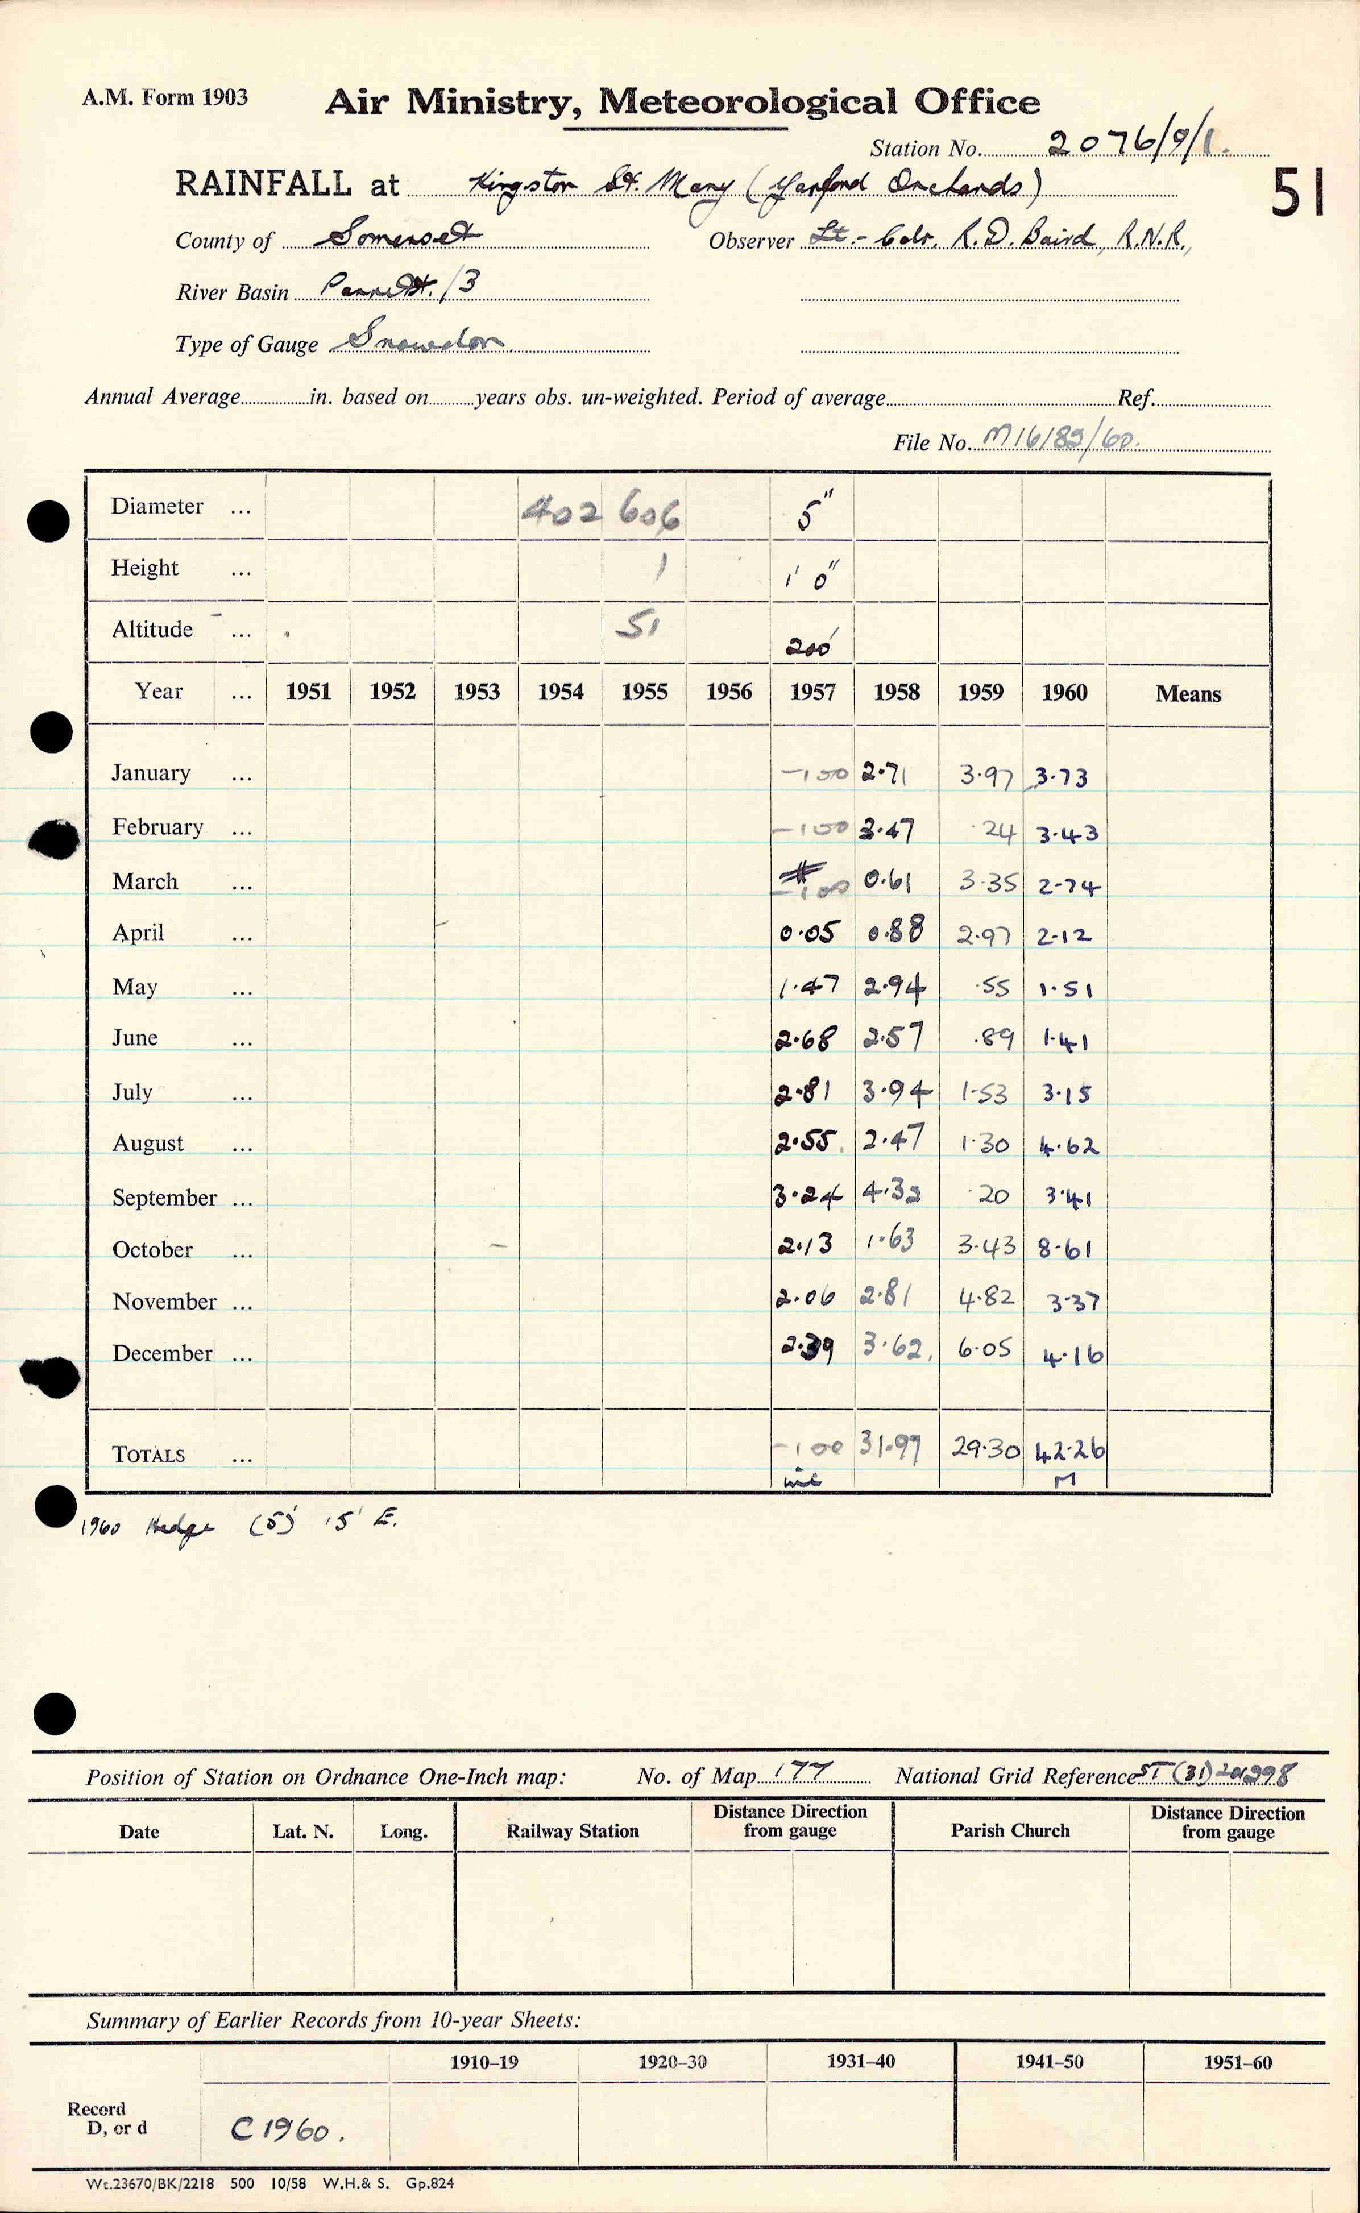 A.M. Form 1903
Air Ministry, Meteorological Office
Station No. 2076/9/1.
RAINFALL at Kingston St. Mary (Yarford Orchards)
51
County of Somerset Observer Lt.-Cdr. R.D. Baird, R.N.R.,
River Basin Parrett. /3
Type of Gauge Snowdon
Annual Average in. based on years obs. un-weighted. Period of average Ref.
File No. M16183/60.
Diameter ... 402 606 5"
Height ... 1 1' 0"
Altitude ... 51 200'
Year ... 1951 1952 1953 1954 1955 1956 1957 1958 1959 1960 Means
January ... -100 2.71 3.97 3.73
February ... -100 3.47 .24 3.43
March ... # -100 0.61 3.35 2.74
April ... 0.05 0.88 2.97 2.12
May ... 1.47 2.94 .55 1.51
June ... 2.68 2.57 .89 1.41
July ... 2.81 3.94 1.53 3.15
August ... 2.55 2.47 1.30 4.62
September ... 3.24 4.32 .20 3.41
October ... 2.13 1.63 3.43 8.61
November ... 2.06 2.81 4.82 3.37
December ... 2.39 3.62 6.05 4.16
TOTALS ... -100 31.97 29.30 42.26
inc M
1960 Hedge (5') 15' E.
Position of Station on Ordnance One-Inch map: No. of Map 177 National Grid Reference ST (31)
Date Lat. N. Long. Railway Station Distance Direction from gauge Parish Church Distance Direction from gauge
Summary of Earlier Records from 10-year Sheets:
1910–19 1920–30 1931–40 1941–50 1951–60
Record
D, or d C 1960.
Wt.23670/BK/2218 500 10/58 W.H.& S. Gp.824